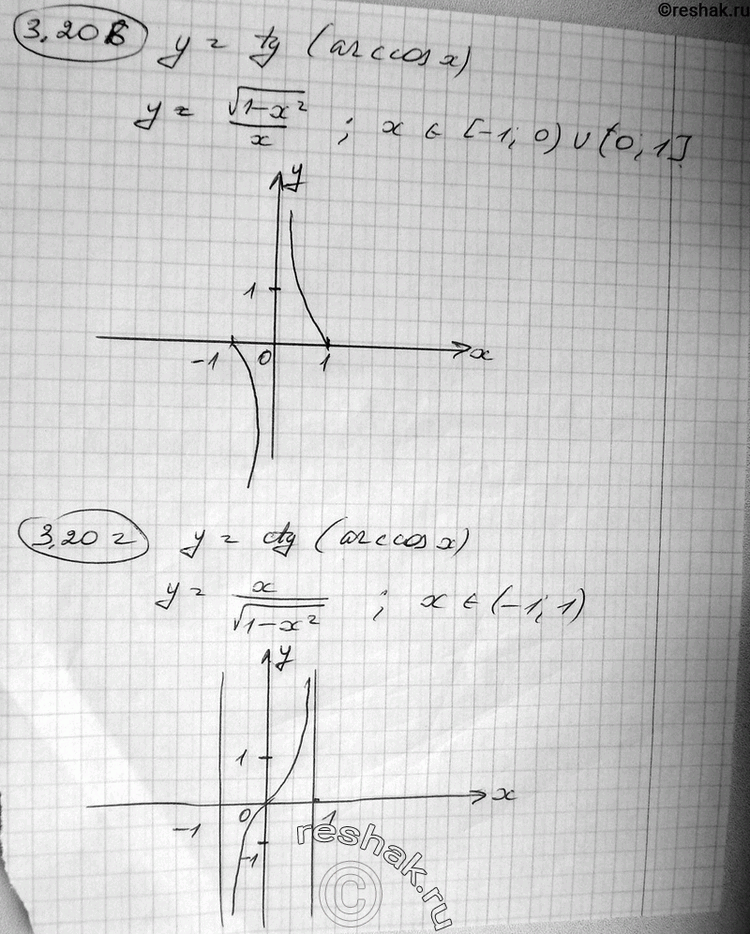 ©reshak.ru
3.20в y = tg (arccos x)
y = √(1-x²)/x ; x ∈ [-1; 0) ∪ (0; 1]
y
1
-1 0 1 x
3.20г y = ctg (arccos x)
y = x/√(1-x²) ; x ∈ (-1; 1)
y
1
x
-1 0 1
-1
reshak.ru
©